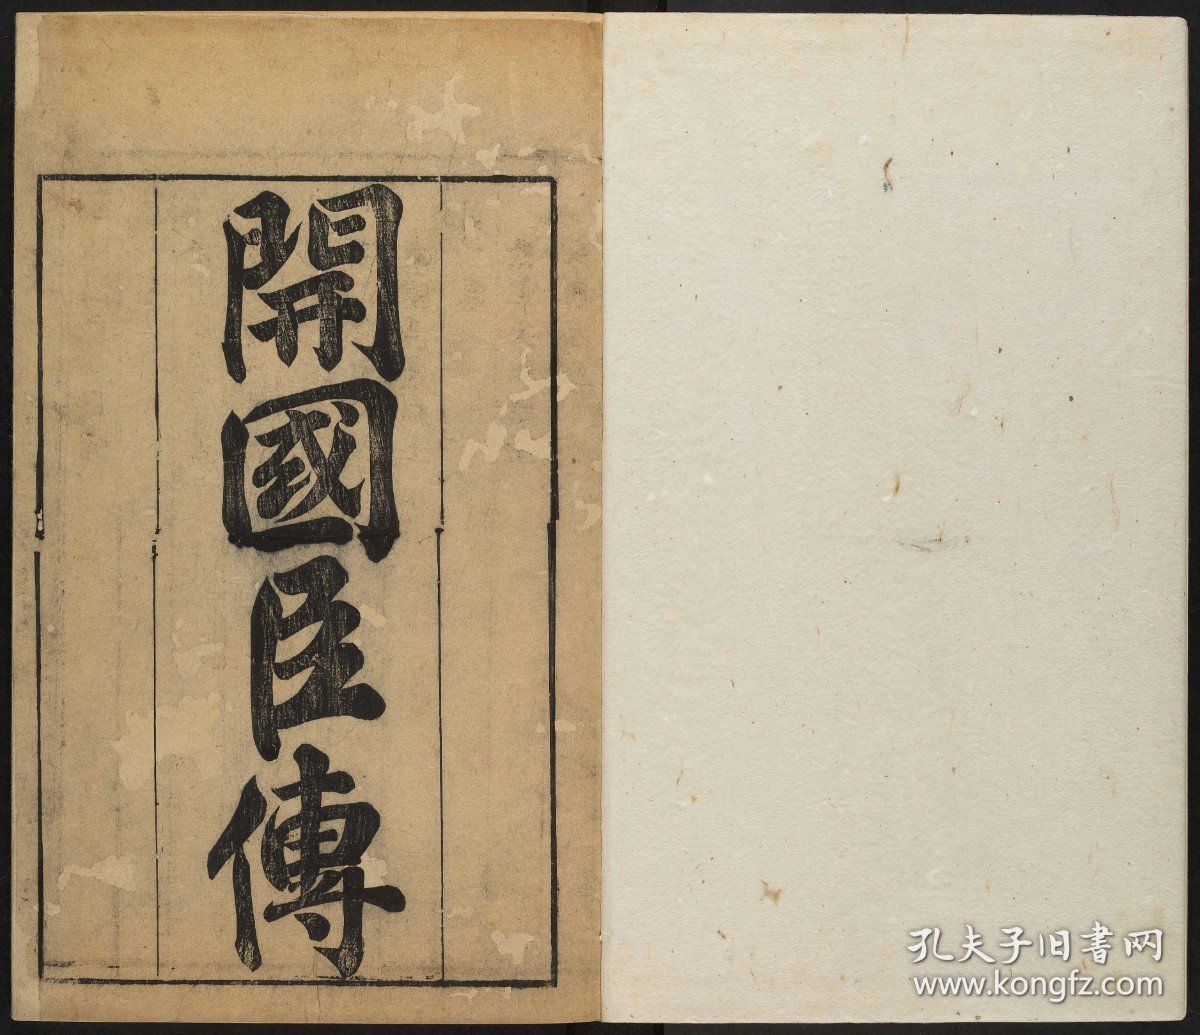 開國臣傳
孔夫子旧书网
www.kongfz.com